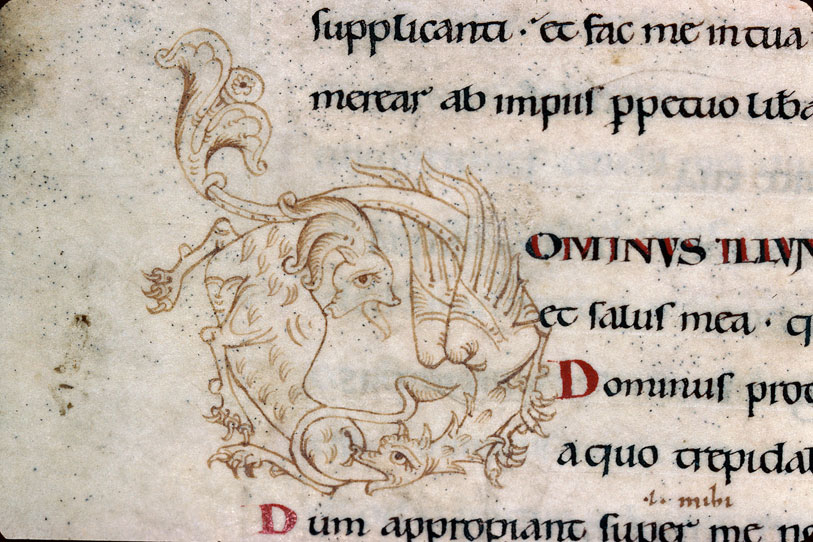 supplicanti · et fac me in tua
merear ab impiis ꝑpetuo lib̄a
OMINVS ILLVM
et salus mea · q
Dominus prot
a quo trepidab
.i. mihi
Dum appropiant super me no